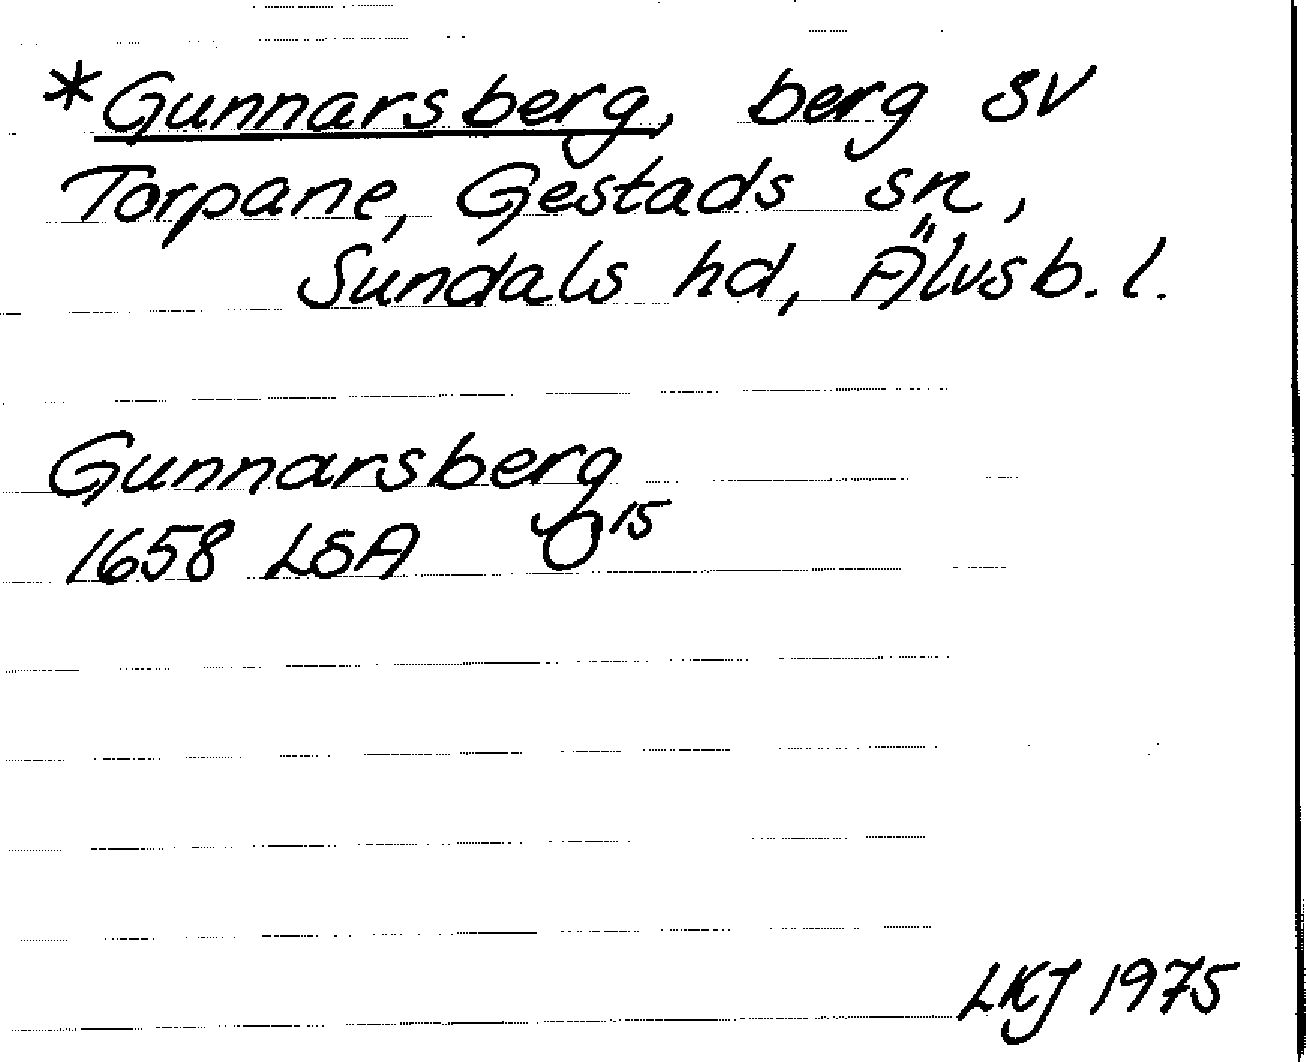 *Gunnarsberg, berg SV
Torpane, Gestads sn,
Sundals hd, Älvsb. l.
Gunnarsberg
1658 LSA O15
LKJ 1975